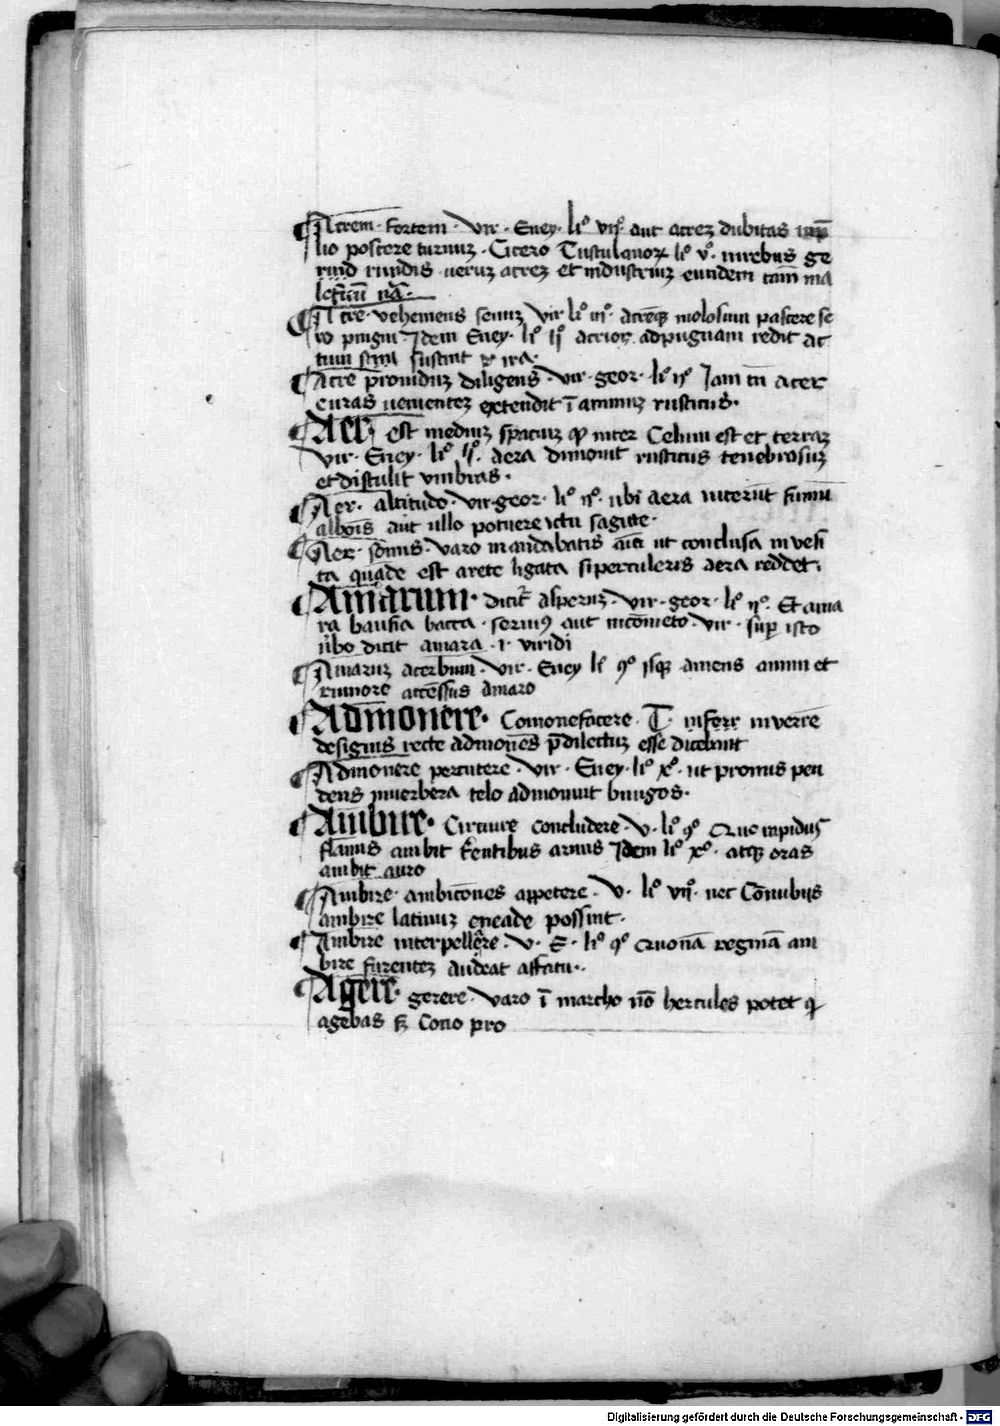 Acrem · fortem · vir · Eney · liº viiº aut acreʒ dubitas
lio poscere turnuʒ · Cicero Tustulanoꝝ liº vº · in rebus ge
rūd ūdis veruʒ acreʒ et industriuʒ euidem tam̄ ma
Acrē · vehemens seruiʒ vir liº iiiº · acrēqʒ molosum pascere se
ro pingui Idem Eney · liº iiº acrior ad pugnam redit ac
uim suscitat ira ·
Acrē prouiduʒ diligens · vir · geor · liº iiº Iam tū acer
curas venienteʒ extendit ī annuuʒ rusticus ·
Aer · est mediuʒ spaciuʒ qd inter Celum est et terraʒ
vir · Eney · liº iiº · aera dimouit rusticus tenebrosuʒ
et distulit vmbras ·
Aer · altitudo · vir · geor · liº iiº · ubi aera vicerūt sumū
alboris aut ullo potuere ictu sagitte ·
Aer · sonus · varo in andabatis ut conclusa in vesi
ta quade est arete ligata si perculeris aera reddet ·
Amarum · dicit̄ asperuʒ · vir · geor · liº iiº · Et ama
ra bausia bacca · seruiꝰ aut incometo · vir · sup isto
ūbo dicit amara · i · viridi
Amaruʒ acerbum · vir · Eney liº qº isqʒ amens animi et
rumore accēssus amaro
Admonere · Comonefacere · T · in ferr in verrē
de signis recte admonēs p̄dilectuʒ esse dicebant
Admonere percutere · vir · Eney · liº xº · ut pronus pen
dens in verbera telo admonuit biiugos ·
Ambire · Circuire concludere · v · liº qº Quo rapidus
flamis ambit torrentibus amnis Idem liº xº · atqʒ oras
ambit auro
Ambire · ambicōnes appetere · v · liº viiº · nec Cōnubijs
ambire latinuʒ eneade possint ·
Ambire interpellēre · v · E · liº qº Quo nūc reginā am
bire furenteʒ audeat affatu ·
Agere · gerere · varo ī marcho nō hercules potet qi
agebas sʒ Cono pro
Digitalisierung gefördert durch die Deutsche Forschungsgemeinschaft - DFG